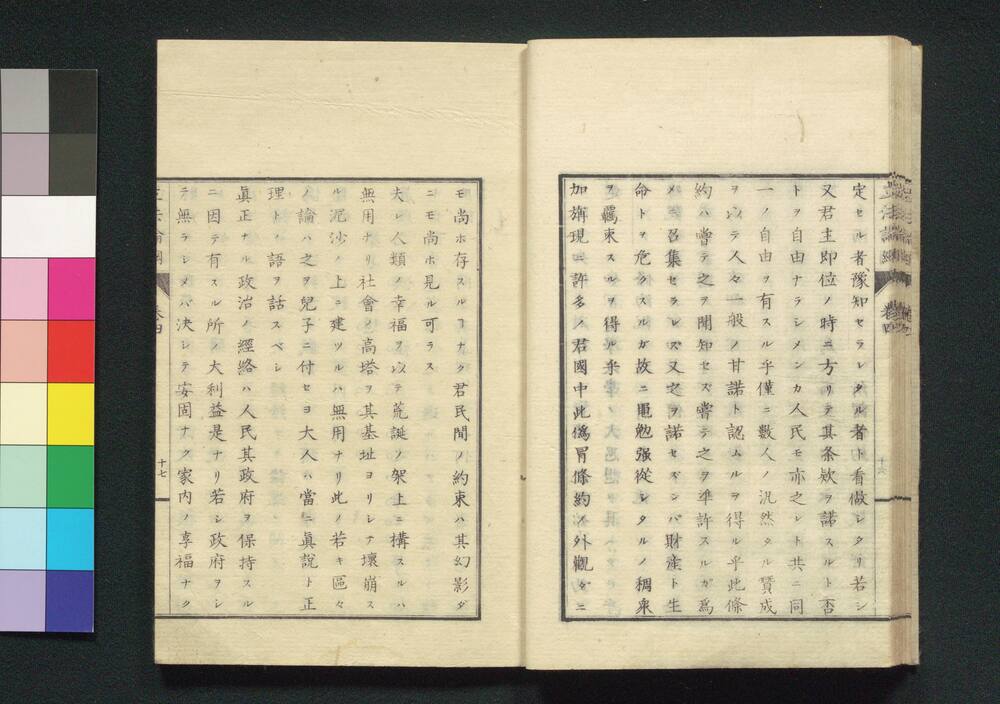 定セル者豫知セラレタル者ト看做レタリ若シ
又君主即位ノ時ニ方リテ其条欵ヲ諾スルト否
トヲ自由ナラシメンカ人民モ亦之レト共ニ同
一ノ自由ヲ有スル乎僅ニ數人ノ汎然タル賛成
ヲ以テ人々一般ノ甘諾ト認ムルヲ得ル乎此條
約ハ嘗テ之ヲ聞知セズ嘗テ之ヲ準許スルガ爲
メニ召集セラレズ又之ヲ諾セズンバ財産ト生
命トヲ危クスルガ故ニ黽勉强從シタルノ稠衆
ヲ羈束スルヲ得ル乎
加旃現ニ許多ノ君國中此僞冒條約ノ外觀ダニ
モ尚ホ存スルヿナク君民間ノ約束ハ其幻影ダ
ニモ尚ホ見ル可ラス
夫レ人類ノ幸福ヲ以テ荒誕ノ架上ニ構スルハ
無用ナリ社會ノ高塔ヲ其基址ヨリシテ壞崩ス
ル泥沙ノ上ニ建ツルハ無用ナリ此ノ若キ區々
ノ論ハ之ヲ兒子ニ付セヨ大人ハ當ニ眞説ト正
理トノ語ヲ話スベシ
眞正ナル政治ノ經絡ハ人民其政府ヲ保持スル
ニ因テ有スル所ノ大利益是ナリ若シ政府ヲシ
テ無ラシメバ決シテ安固ナク家内ノ享福ナク
十七